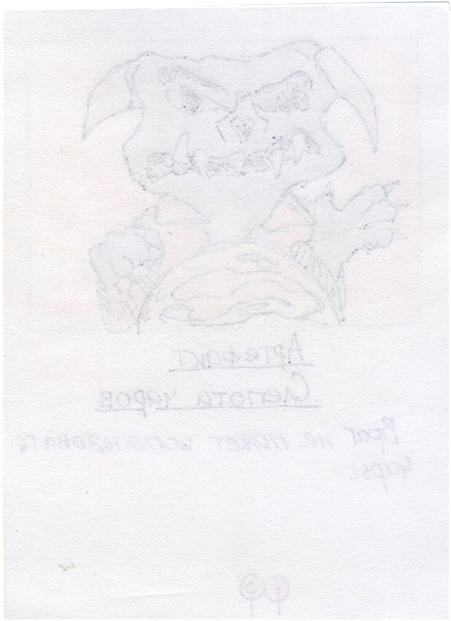 Артефакт
Слепота чаров
Враг не может использовать
чары.